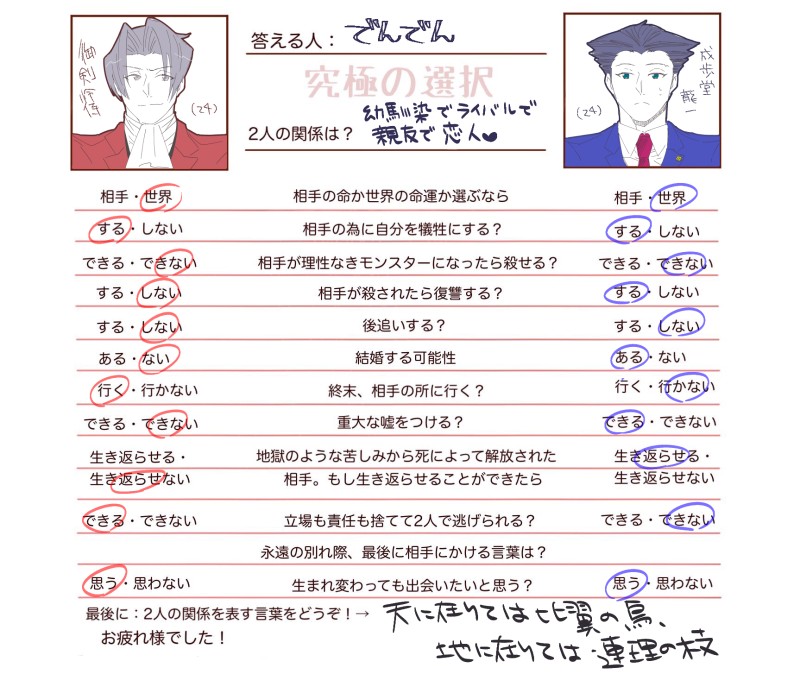 御剣怜侍
(24)
答える人：でんでん
究極の選択
2人の関係は？
幼馴染でライバルで
親友で恋人♥
成歩堂
龍一
(24)
相手・世界 相手の命か世界の命運か選ぶなら 相手・世界
する・しない 相手の為に自分を犠牲にする？ する・しない
できる・できない 相手が理性なきモンスターになったら殺せる？ できる・できない
する・しない 相手が殺されたら復讐する？ する・しない
する・しない 後追いする？ する・しない
ある・ない 結婚する可能性 ある・ない
行く・行かない 終末、相手の所に行く？ 行く・行かない
できる・できない 重大な嘘をつける？ できる・できない
生き返らせる・ 地獄のような苦しみから死によって解放された 生き返らせる・
生き返らせない 相手。もし生き返らせることができたら 生き返らせない
できる・できない 立場も責任も捨てて2人で逃げられる？ できる・できない
永遠の別れ際、最後に相手にかける言葉は？
思う・思わない 生まれ変わっても出会いたいと思う？ 思う・思わない
最後に：2人の関係を表す言葉をどうぞ！→ 天に在りては比翼の鳥、
お疲れ様でした！ 地に在りては連理の枝